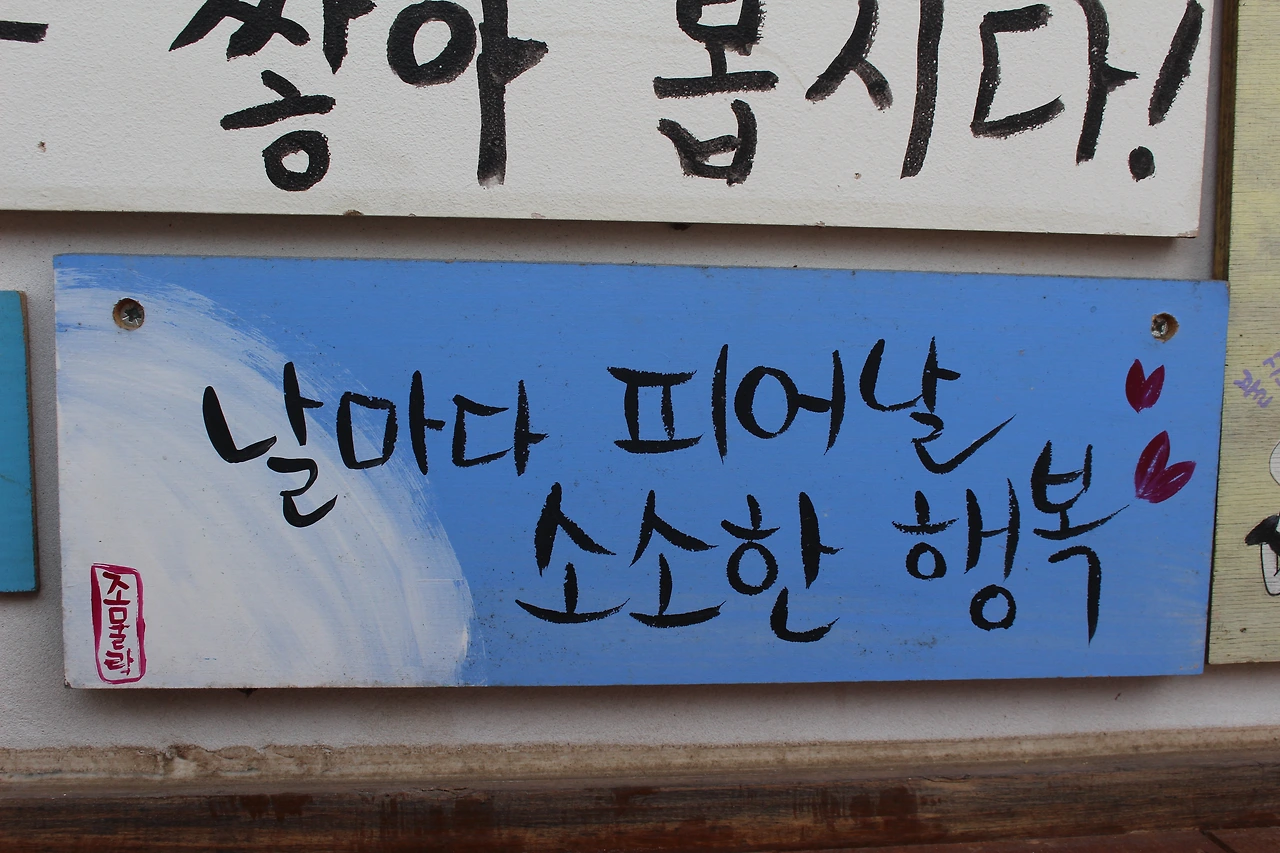 찾아 봅시다!
날마다 피어날
소소한 행복